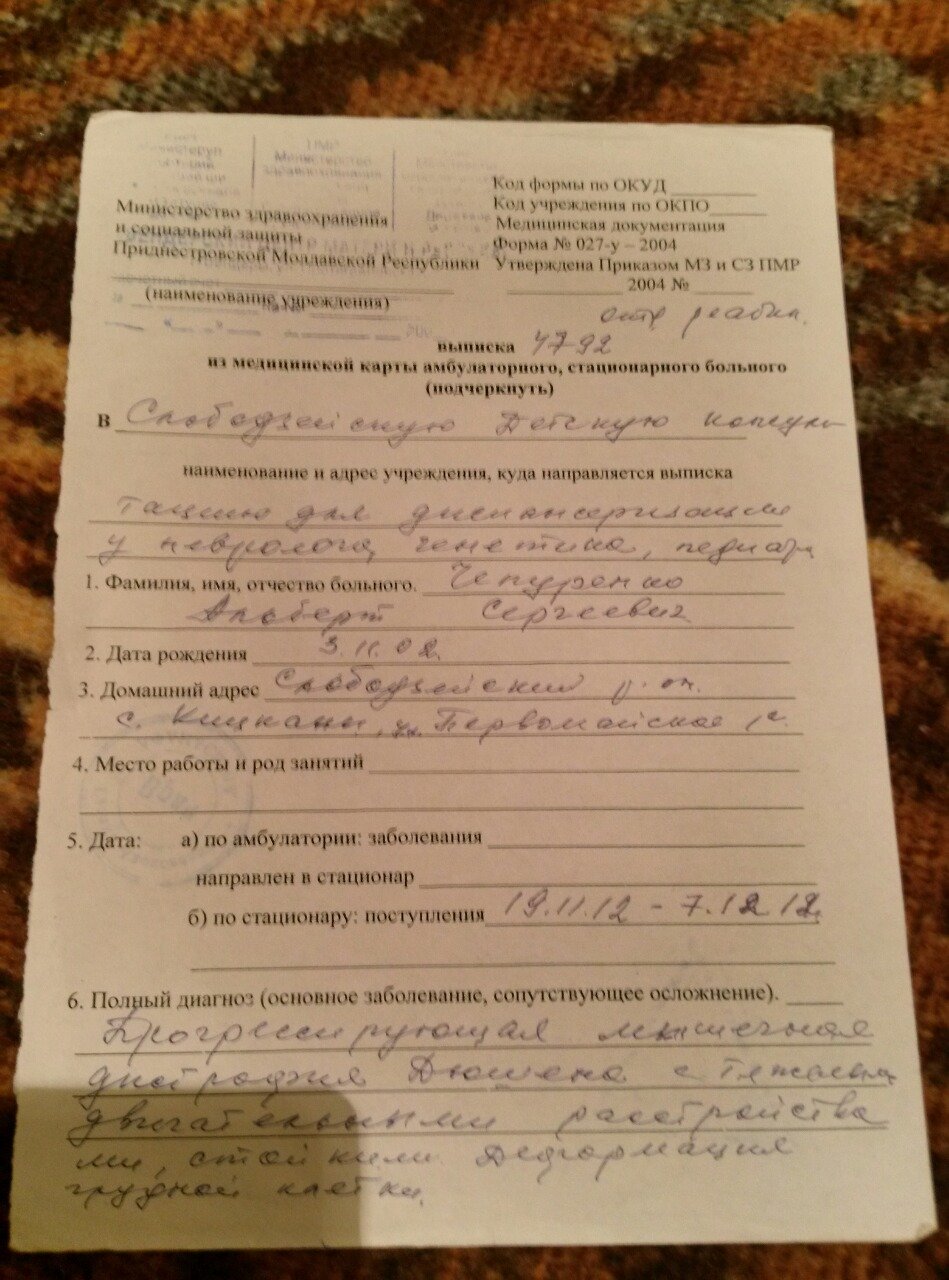 ПМР
Министерство
здравоохранения
Код формы по ОКУД
Код учреждения по ОКПО
Министерство здравоохранения
и социальной защиты
Приднестровской Молдавской Республики
(наименование учреждения)
Медицинская документация
Форма № 027-у – 2004
Утверждена Приказом МЗ и СЗ ПМР
2004 №
выписка 4792
из медицинской карты амбулаторного, стационарного больного
(подчеркнуть)
В Слободзейскую Детскую консуль
наименование и адрес учреждения, куда направляется выписка
тацию для диспансеризации
у невролога, генетика, педиатра
1. Фамилия, имя, отчество больного. Чепуренко
Альберт Сергеевич
2. Дата рождения 3.11.02.
3. Домашний адрес Слободзейский р-он.
с. Кицканы, ул. Первомайская
4. Место работы и род занятий
5. Дата: а) по амбулатории: заболевания
направлен в стационар
б) по стационару: поступления 19.11.12 – 7.12.12.
6. Полный диагноз (основное заболевание, сопутствующее осложнение).
Прогрессирующая мышечная
дистрофия Дюшена с тяжелыми
двигательными расстройства
ми, стойкими деформация
грудной клетки.